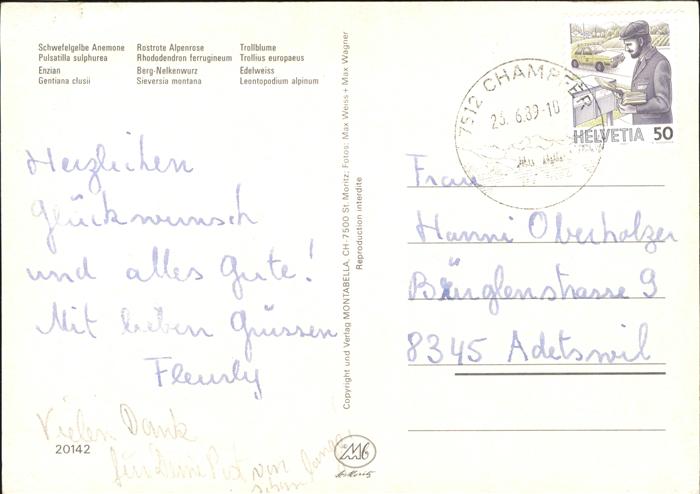 Schwefelgelbe Anemone
Pulsatilla sulphurea
Enzian
Gentiana clusii
Rostrote Alpenrose
Rhododendron ferrugineum
Berg-Nelkenwurz
Sieversia montana
Trollblume
Trollius europaeus
Edelweiss
Leontopodium alpinum
Herzlichen
Glückwunsch
und alles Gute!
Mit lieben Grüssen
Vielen Dank
20142
Copyright und Verlag MONTABELLA, CH-7500 St. Moritz; Fotos: Max Weiss + Max Wagner
Reproduction interdite
7512 CHAMPFÈR
6.89-10
HELVETIA 50
Frau
Hanni Oberholzer
Bürglenstrasse 9
8345 Adetswil
St. Moritz